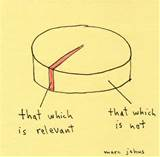 that which
is relevant
that which
is not
marc johns